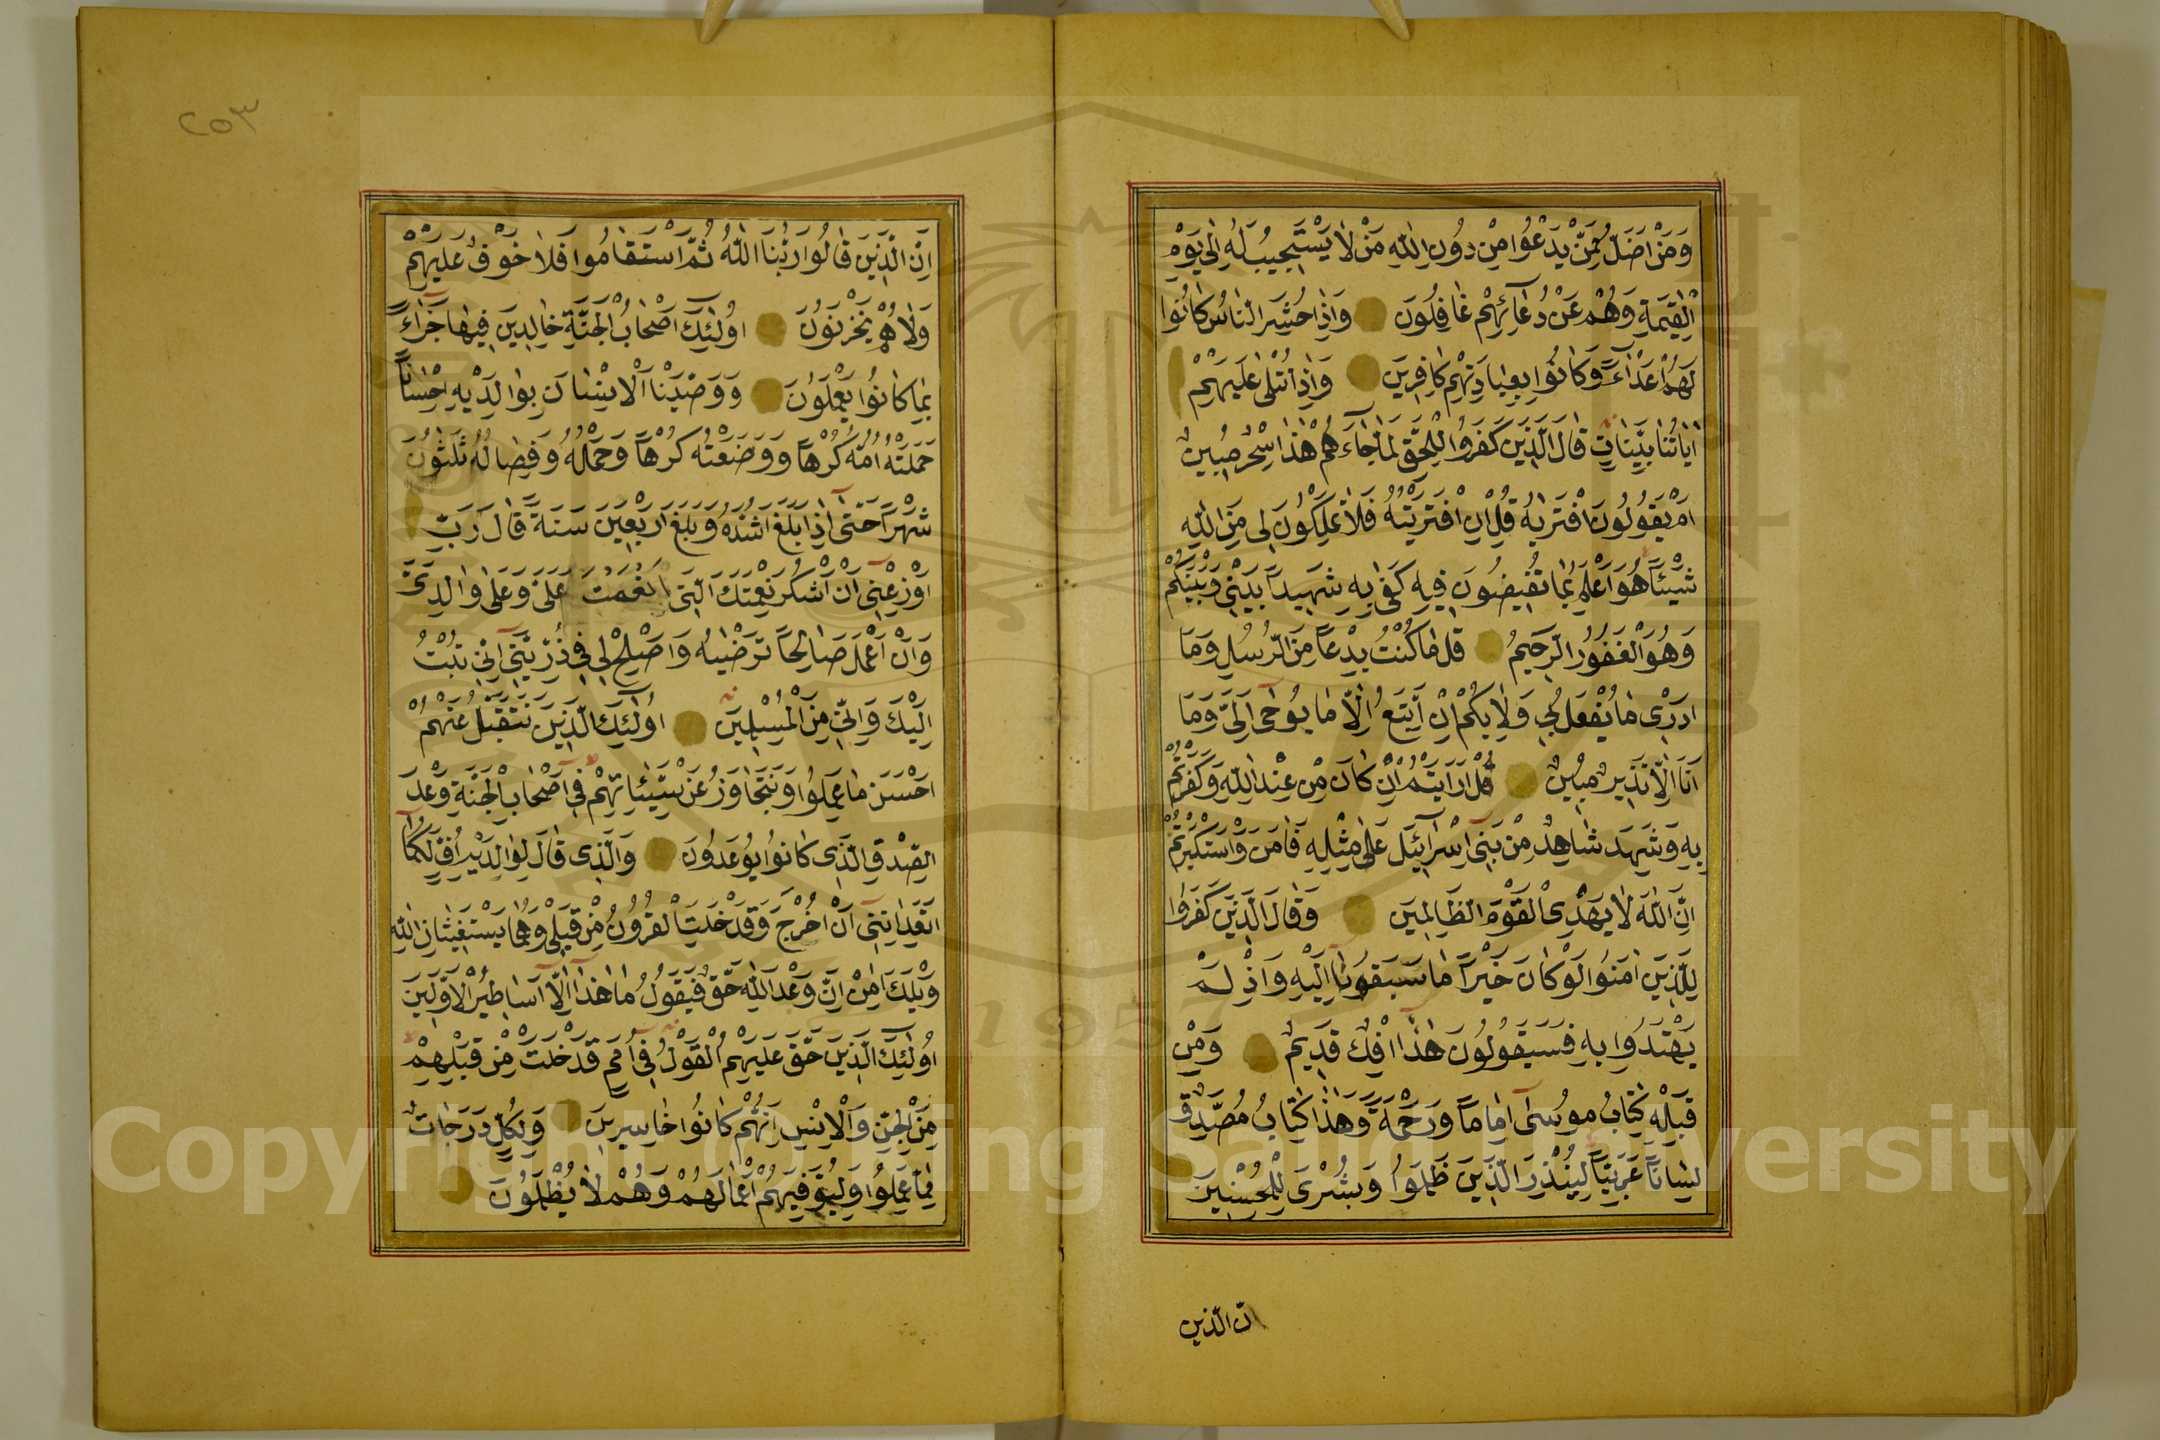 وَمَنْ اَضَلُّ مِمَّنْ يَدْعُوا مِنْ دُونِ اللّٰهِ مَنْ لَا يَسْتَجِيبُ لَهُ اِلٰى يَوْمِ
الْقِيٰمَةِ وَهُمْ عَنْ دُعَآئِهِمْ غَافِلُونَ وَاِذَا حُشِرَ النَّاسُ كَانُوا
لَهُمْ اَعْدَآءً وَكَانُوا بِعِبَادَتِهِمْ كَافِرِينَ وَاِذَا تُتْلٰى عَلَيْهِمْ
اٰيَاتُنَا بَيِّنَاتٍ قَالَ الَّذِينَ كَفَرُوا لِلْحَقِّ لَمَّا جَآءَهُمْ هٰذَا سِحْرٌ مُبِينٌ
اَمْ يَقُولُونَ افْتَرٰيهُ قُلْ اِنِ افْتَرَيْتُهُ فَلَا تَمْلِكُونَ لِى مِنَ اللّٰهِ
شَيْئًا هُوَ اَعْلَمُ بِمَا تُفِيضُونَ فِيهِ كَفٰى بِهِ شَهِيدًا بَيْنِى وَبَيْنَكُمْ
وَهُوَ الْغَفُورُ الرَّحِيمُ قُلْ مَا كُنْتُ بِدْعًا مِنَ الرُّسُلِ وَمَا
اَدْرِى مَا يُفْعَلُ بِى وَلَا بِكُمْ اِنْ اَتَّبِعُ اِلَّا مَا يُوحٰى اِلَىَّ وَمَا
اَنَا اِلَّا نَذِيرٌ مُبِينٌ قُلْ اَرَاَيْتُمْ اِنْ كَانَ مِنْ عِنْدِ اللّٰهِ وَكَفَرْتُمْ
بِهِ وَشَهِدَ شَاهِدٌ مِنْ بَنِى اِسْرَآئِيلَ عَلٰى مِثْلِهِ فَاٰمَنَ وَاسْتَكْبَرْتُمْ
اِنَّ اللّٰهَ لَا يَهْدِى الْقَوْمَ الظَّالِمِينَ وَقَالَ الَّذِينَ كَفَرُوا
لِلَّذِينَ اٰمَنُوا لَوْ كَانَ خَيْرًا مَا سَبَقُونَا اِلَيْهِ وَاِذْ لَمْ
يَهْتَدُوا بِهِ فَسَيَقُولُونَ هٰذَا اِفْكٌ قَدِيمٌ وَمِنْ
قَبْلِهِ كِتَابُ مُوسٰى اِمَامًا وَرَحْمَةً وَهٰذَا كِتَابٌ مُصَدِّقٌ
لِسَانًا عَرَبِيًّا لِيُنْذِرَ الَّذِينَ ظَلَمُوا وَبُشْرٰى لِلْمُحْسِنِينَ
انّ الّذين
٢٥٣
اِنَّ الَّذِينَ قَالُوا رَبُّنَا اللّٰهُ ثُمَّ اسْتَقَامُوا فَلَا خَوْفٌ عَلَيْهِمْ
وَلَا هُمْ يَحْزَنُونَ اُولٰٓئِكَ اَصْحَابُ الْجَنَّةِ خَالِدِينَ فِيهَا جَزَآءً
بِمَا كَانُوا يَعْمَلُونَ وَوَصَّيْنَا الْاِنْسَانَ بِوَالِدَيْهِ اِحْسَانًا
حَمَلَتْهُ اُمُّهُ كُرْهًا وَوَضَعَتْهُ كُرْهًا وَحَمْلُهُ وَفِصَالُهُ ثَلٰثُونَ
شَهْرًا حَتّٰى اِذَا بَلَغَ اَشُدَّهُ وَبَلَغَ اَرْبَعِينَ سَنَةً قَالَ رَبِّ
اَوْزِعْنِى اَنْ اَشْكُرَ نِعْمَتَكَ الَّتِى اَنْعَمْتَ عَلَىَّ وَعَلٰى وَالِدَىَّ
وَاَنْ اَعْمَلَ صَالِحًا تَرْضٰيهُ وَاَصْلِحْ لِى فِى ذُرِّيَّتِى اِنِّى تُبْتُ
اِلَيْكَ وَاِنِّى مِنَ الْمُسْلِمِينَ اُولٰٓئِكَ الَّذِينَ نَتَقَبَّلُ عَنْهُمْ
اَحْسَنَ مَا عَمِلُوا وَنَتَجَاوَزُ عَنْ سَيِّئَاتِهِمْ فِى اَصْحَابِ الْجَنَّةِ وَعْدَ
الصِّدْقِ الَّذِى كَانُوا يُوعَدُونَ وَالَّذِى قَالَ لِوَالِدَيْهِ اُفٍّ لَكُمَا
اَتَعِدَانِنِى اَنْ اُخْرَجَ وَقَدْ خَلَتِ الْقُرُونُ مِنْ قَبْلِى وَهُمَا يَسْتَغِيثَانِ اللّٰهَ
وَيْلَكَ اٰمِنْ اِنَّ وَعْدَ اللّٰهِ حَقٌّ فَيَقُولُ مَا هٰذَا اِلَّا اَسَاطِيرُ الْاَوَّلِينَ
اُولٰٓئِكَ الَّذِينَ حَقَّ عَلَيْهِمُ الْقَوْلُ فِى اُمَمٍ قَدْ خَلَتْ مِنْ قَبْلِهِمْ
مِنَ الْجِنِّ وَالْاِنْسِ اِنَّهُمْ كَانُوا خَاسِرِينَ وَلِكُلٍّ دَرَجَاتٌ
مِمَّا عَمِلُوا وَلِيُوَفِّيَهُمْ اَعْمَالَهُمْ وَهُمْ لَا يُظْلَمُونَ
1957
Copyright © King Saud University